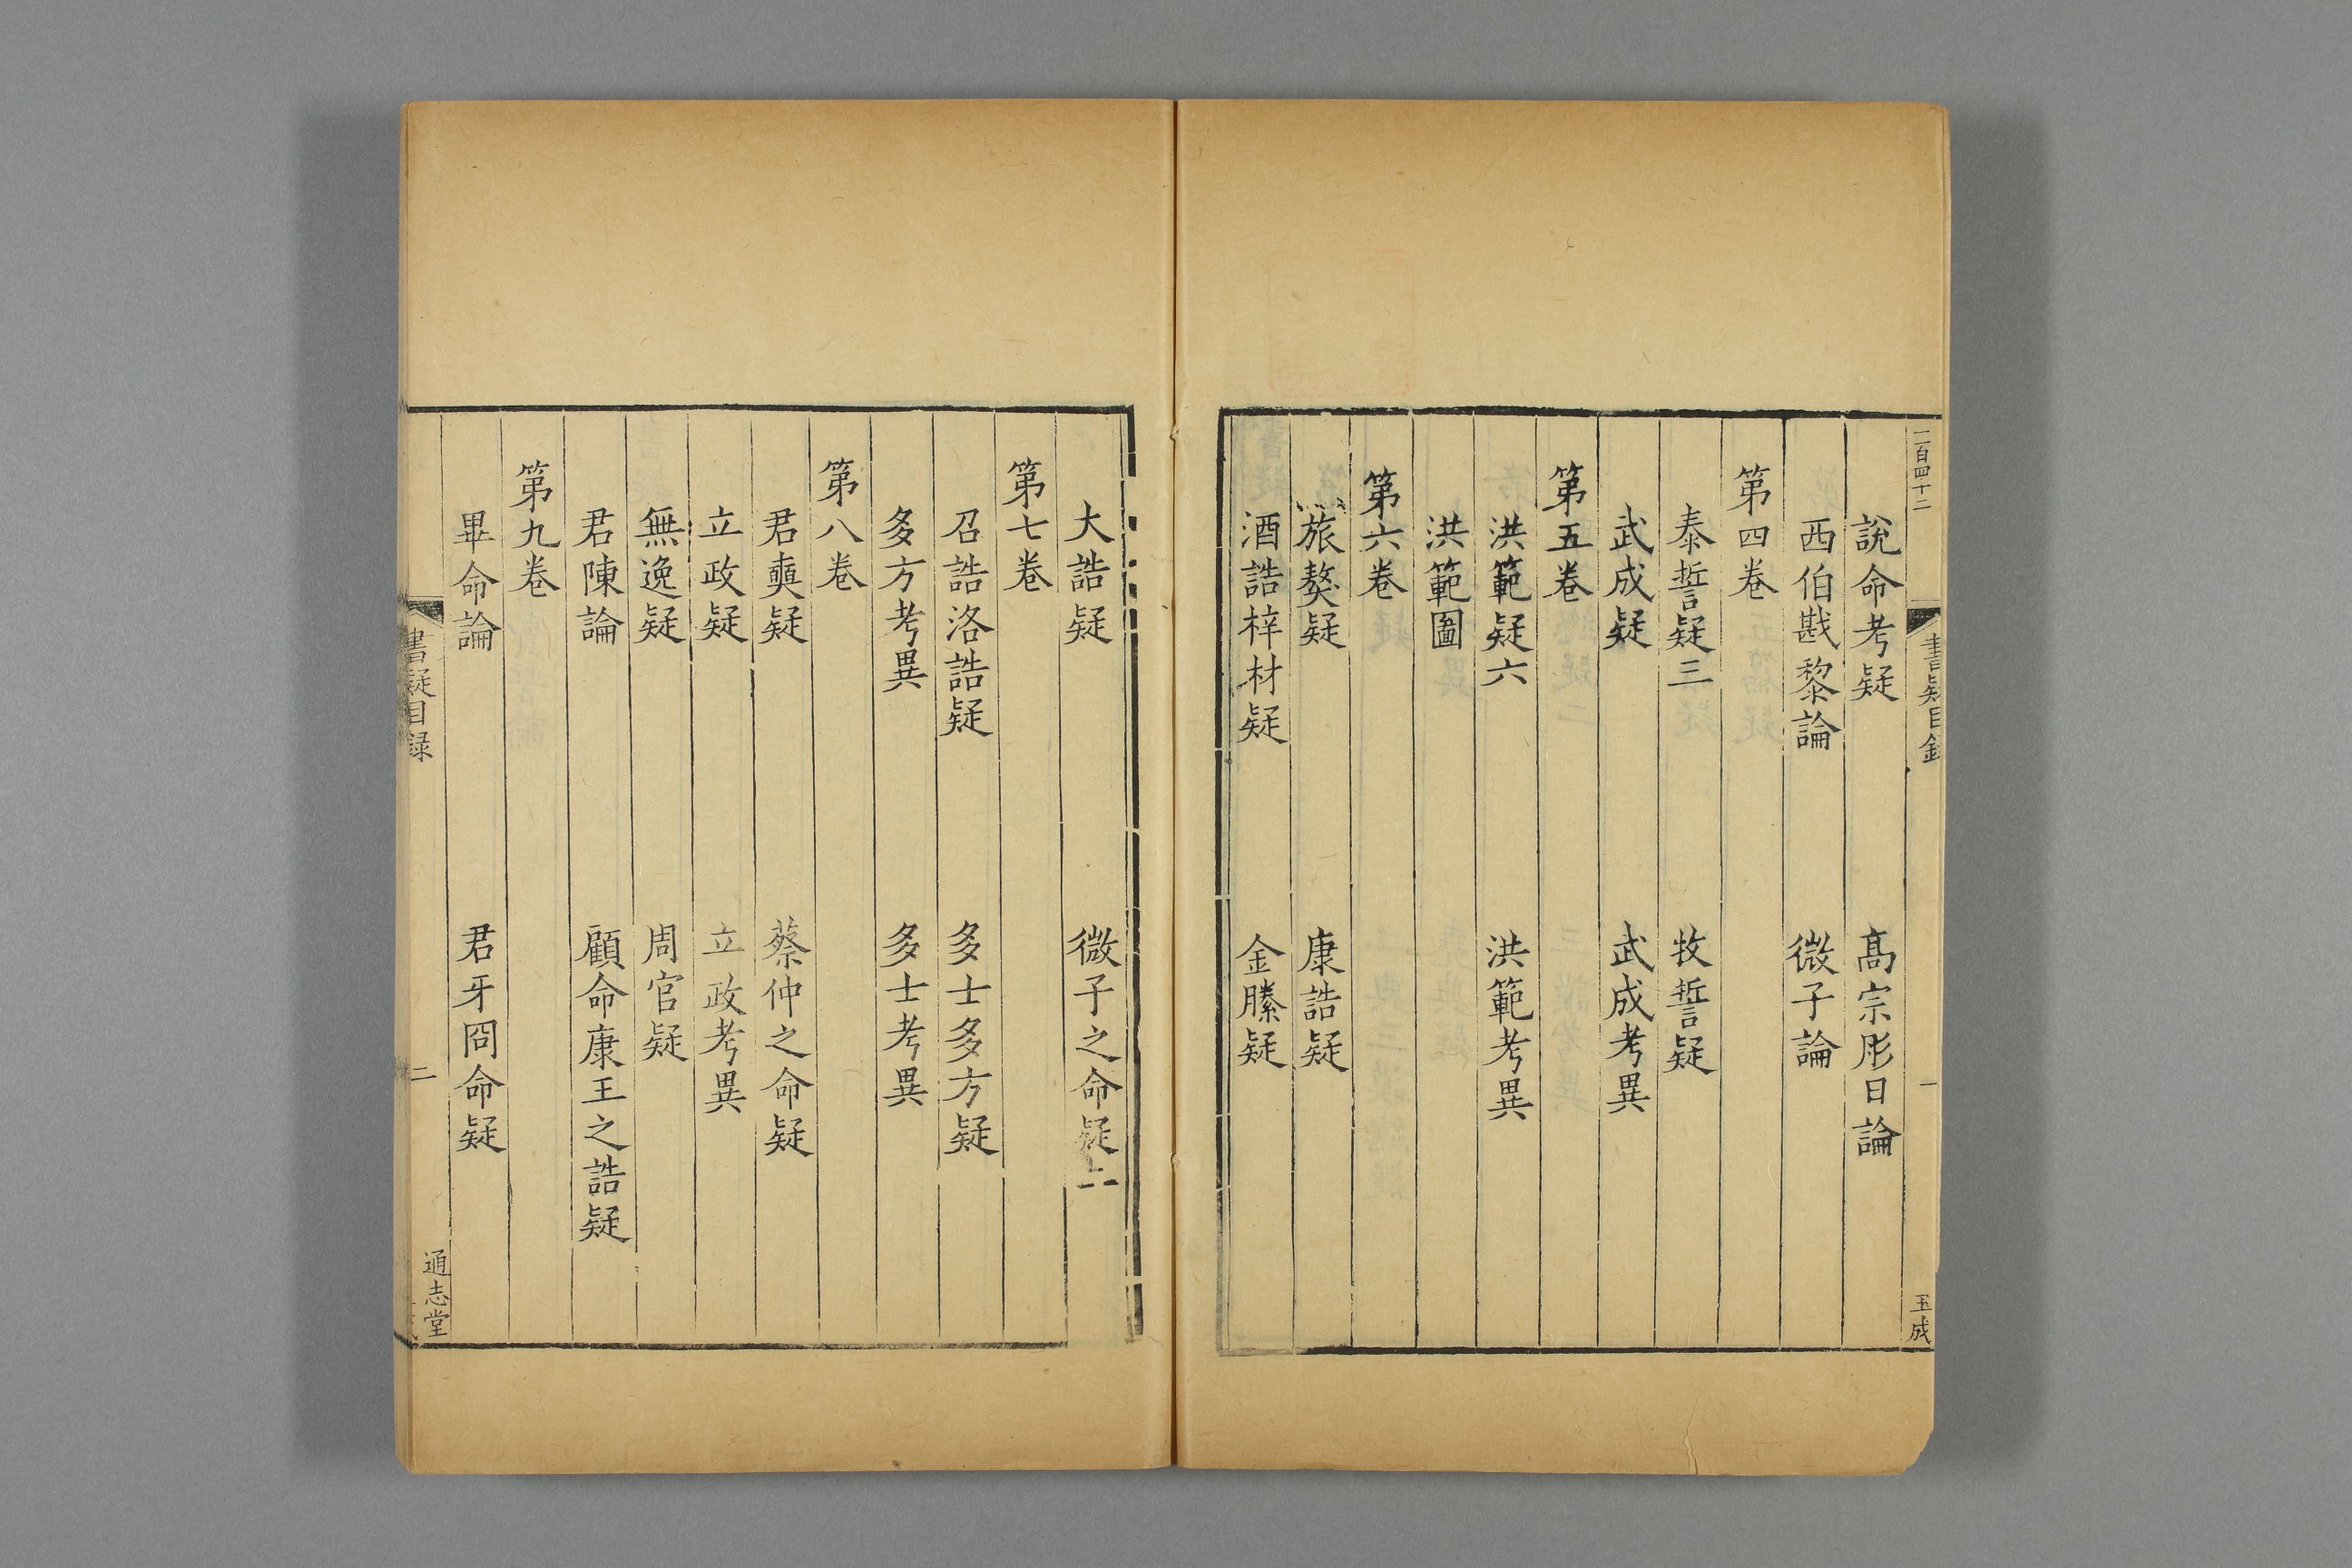 二百四十二
書疑目錄
一
玉成
說命考疑 髙宗肜日論
西伯戡黎論 微子論
第四卷
泰誓疑三 牧誓疑
武成疑 武成考異
第五卷
洪範疑六 洪範考異
洪範圖
第六卷
旅獒疑 康誥疑
酒誥梓材疑 金縢疑
大誥疑 微子之命疑二
第七卷
召誥洛誥疑 多士多方疑
多方考異 多士考異
第八卷
君奭疑 蔡仲之命疑
立政疑 立政考異
無逸疑 周官疑
君陳論 顧命康王之誥疑
第九卷
畢命論 君牙冏命疑
書疑目録
二
通志堂